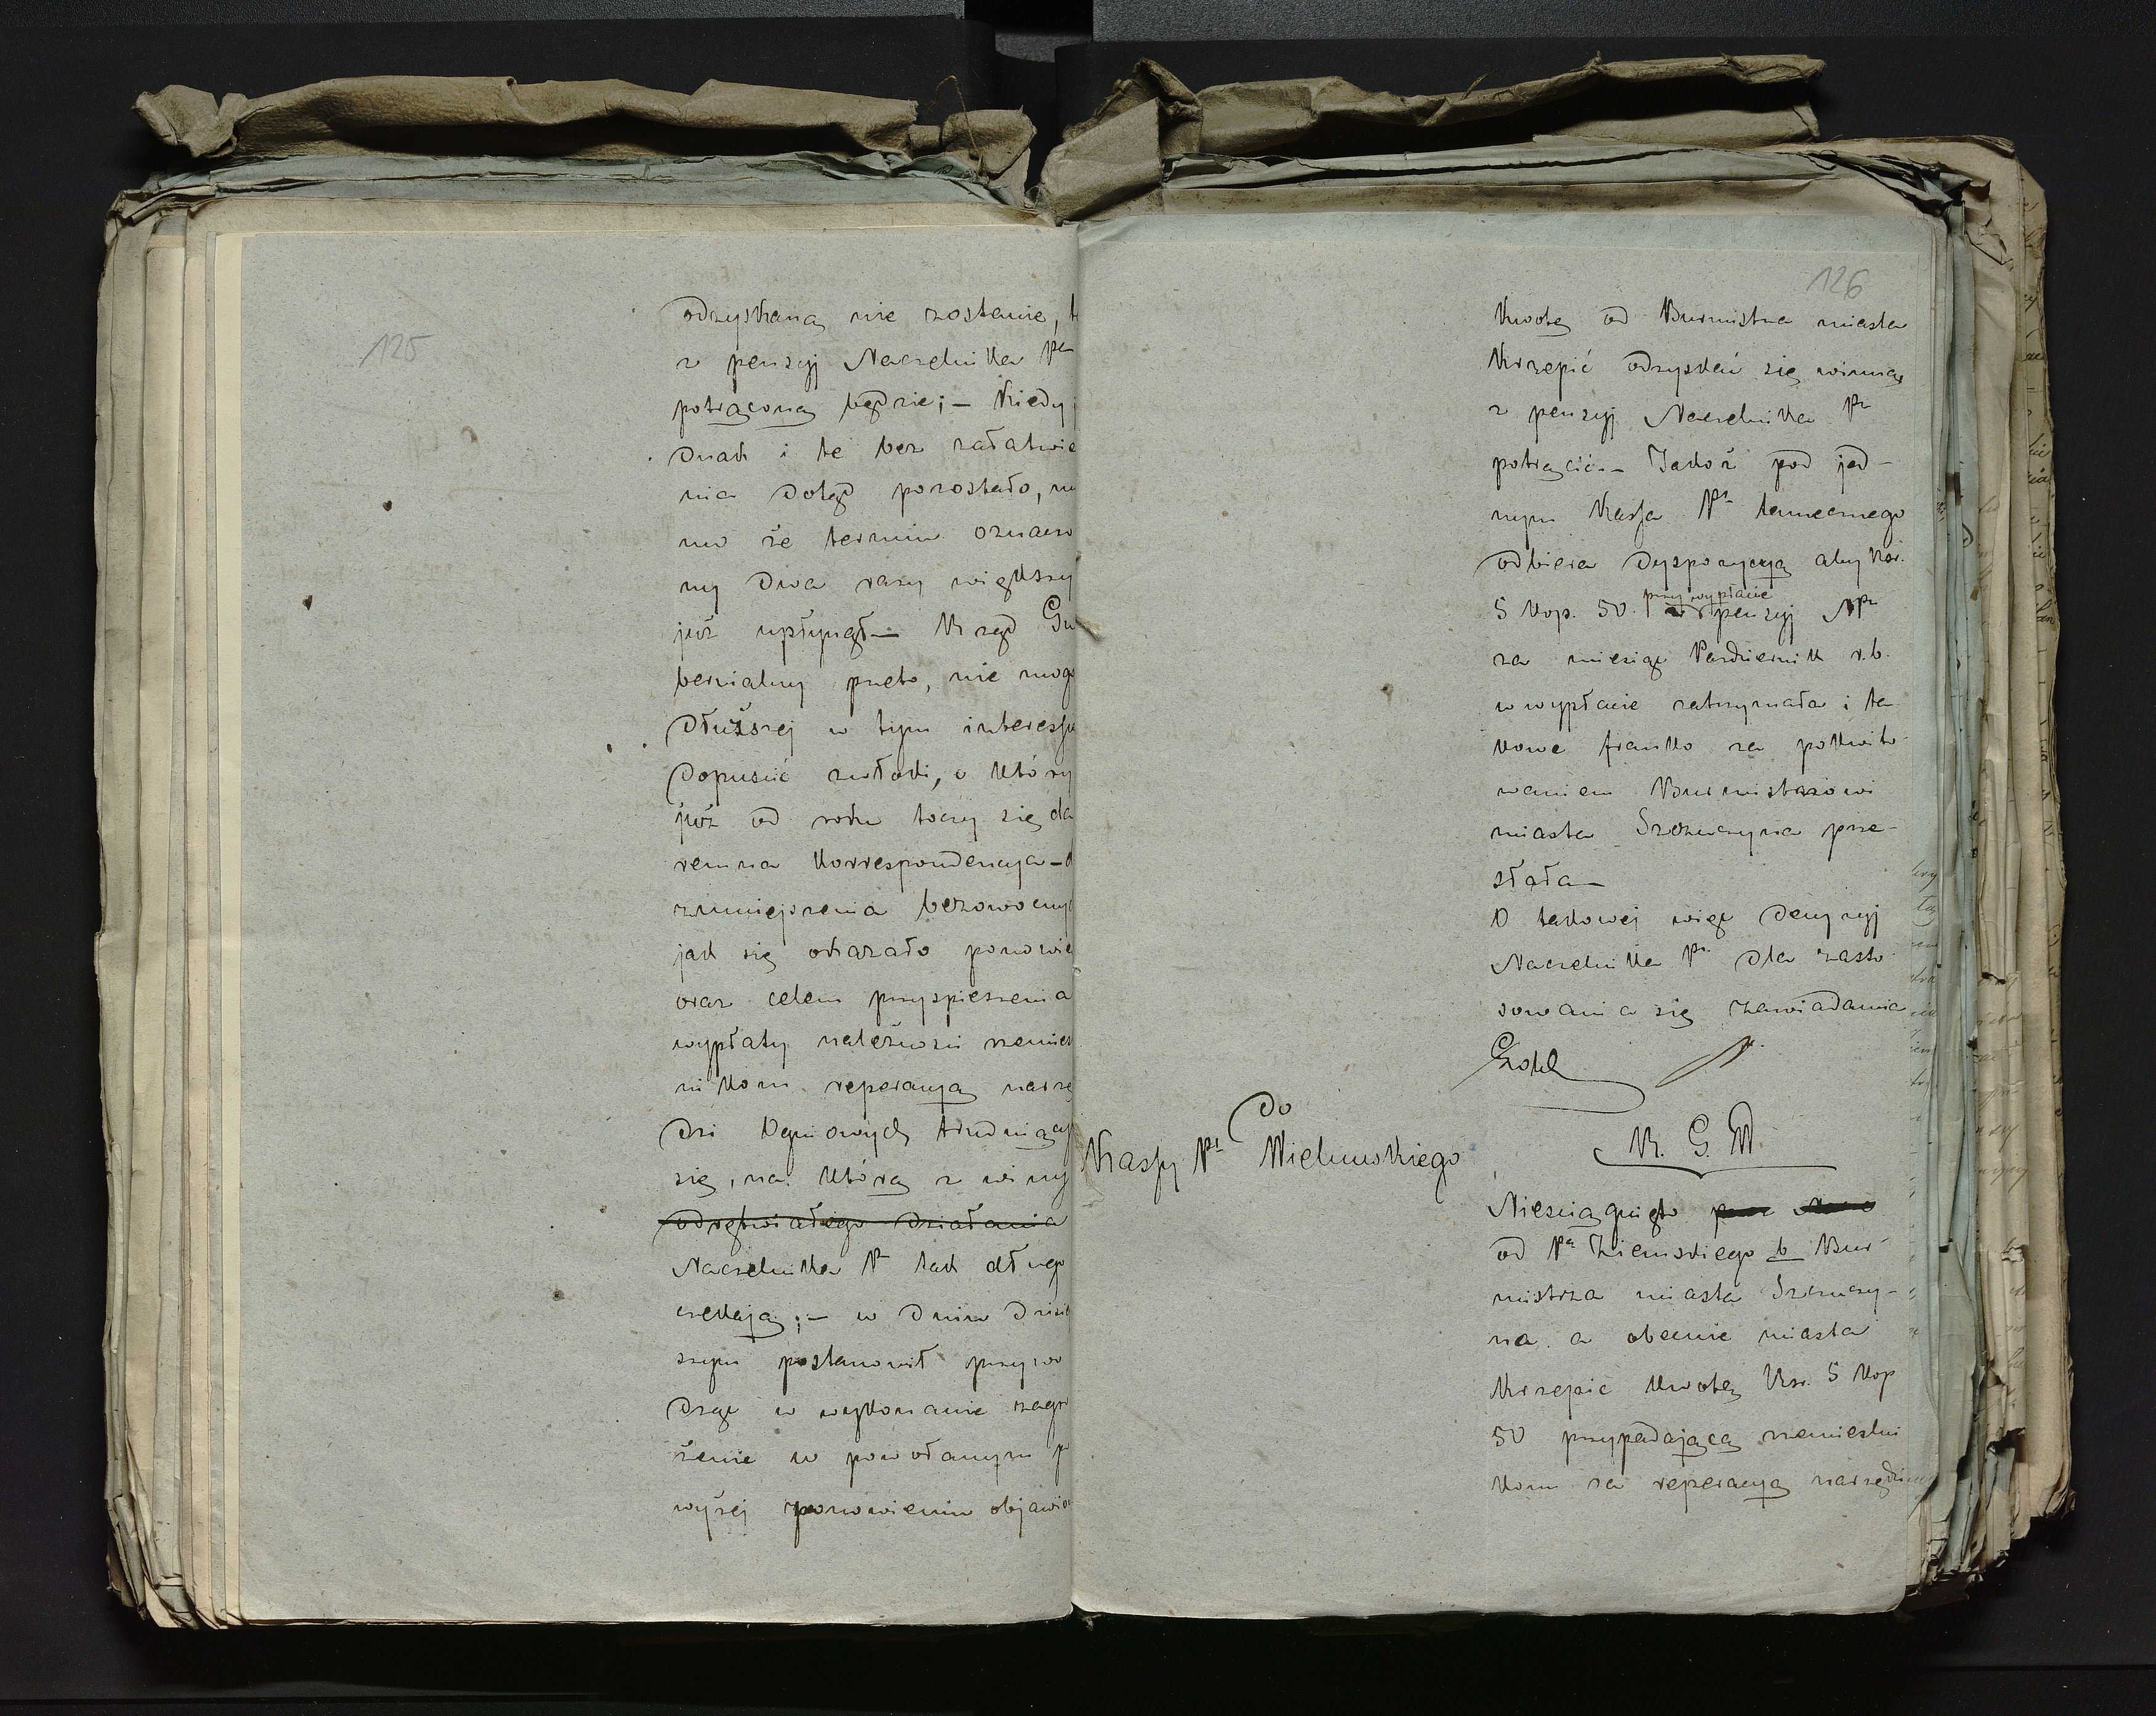 125
odzyskaną nie zostanie, t
z pensyj Naczelnika Ptu
potrąconą będzie; – Kiedy j
dnak i te bez załatwie
nia dotąd pozostało, mi
mo że termin oznaczo
ny dwa razy większy
już upłynął – Rząd Gu
bernialny przeto, nie mogą
dłuższej w tym interessie
dopuścić zwłoki, o który
już od roku toczy się da
remna korrespondencya –
zmniejszenia bezowocnyc
jak się okazało ponowie
oraz celem przyspieszenia
wypłaty należności rzemieś
nikom reperacyą narzę
dzi ogniowych trudniącyc
się, na którą z winy
odrętwiałego działania
Naczelnika P tak długo
czekają; – w dniu dzisie
szym postanowił przywo
dząc w wykonanie zagro
żenie w powołanym p
wyżej ponowieniu objawio
126
kwotę od Burmistrza miasta
Krzepic odzyskać się winną
z pensyj Naczelnika Ptu
potrącić. – Jakoż pod jed-
nym Kassa Ptu tamecznego
odbiera dyspozycyą aby Rsr.
przy wypłacie
5 kop. 50 pensyj NPtu
za miesiąc Październik r.b.
w wypłacie zatrzymała i ta
kowe franko za pokwito
waniem Burmistrzowi
miasta Szczuczyna prze-
słała –
O takowej więc decyzyj
Naczelnika Ptu dla zasto
sowania się zawiadamia
Do
Kassy Ptu Wieluńskiego
R. G. W.
Nieściągnięto
od Pa Ziemskiego b Bur
mistrza miasta Szczuczy-
na a obecnie miasta
Krzepic kwotę Rsr. 5 kop
50 przypadającą rzemieślni
kom za reperacyą narzędzi